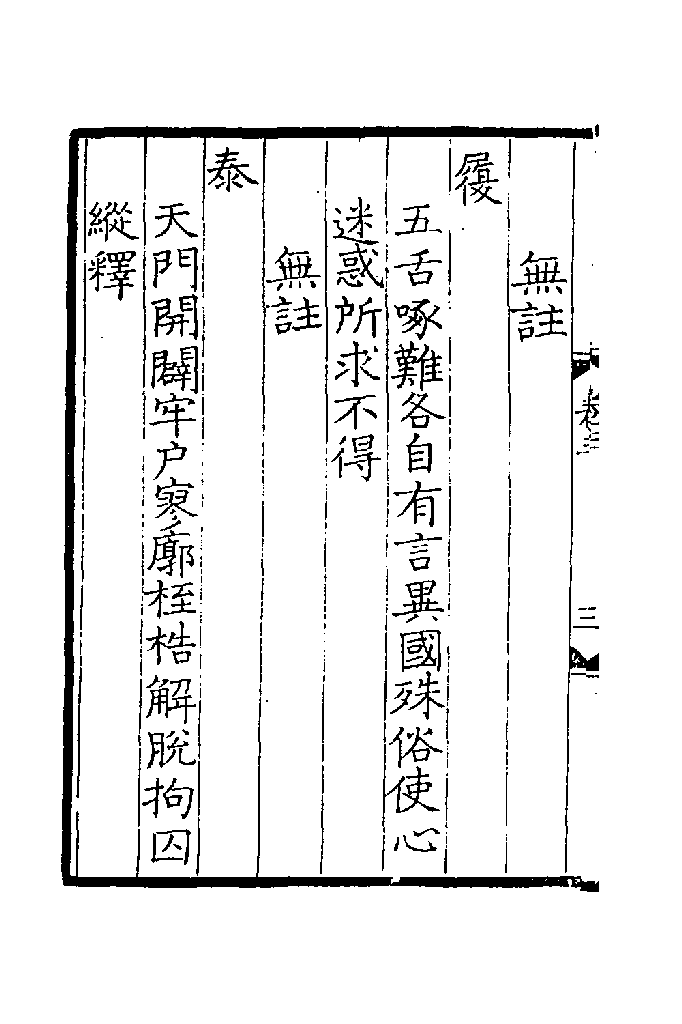 無註
履
五舌啄難各自有言異國殊俗使心
迷惑所求不得
無註
泰
天門開闢牢户寥廓桎梏解脫拘囚
縱釋
卷三
三